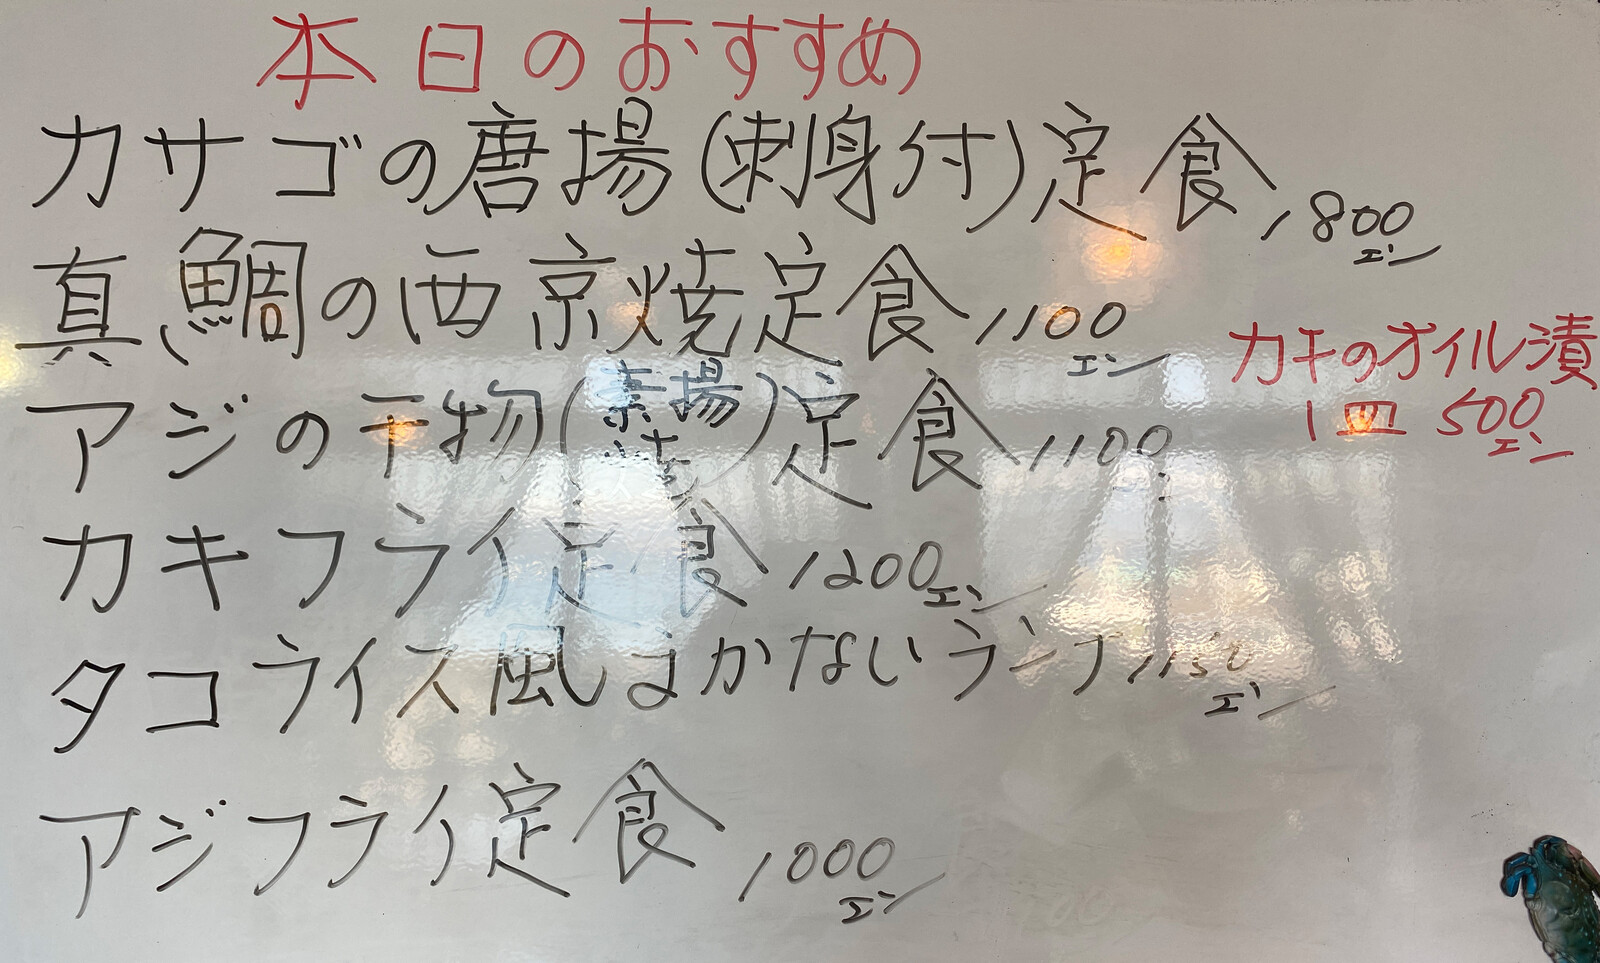 本日のおすすめ
カサゴの唐揚(刺身付)定食 1800エン
真鯛の西京焼定食 1100エン
アジの干物(素揚 焼)定食 1100
カキフライ定食 1200エン
タコライス風まかないランチ 1150エン
アジフライ定食 1000エン
カキのオイル漬
1皿 500エン